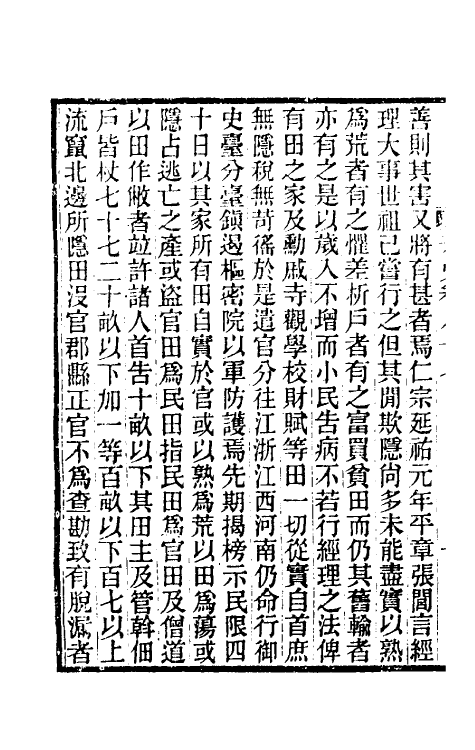 善則其害又將有甚者焉仁宗延祐元年平章張閭言經
理大事世祖已嘗行之但其閒欺隱尚多未能盡實以熟
爲荒者有之懼差析戶者有之富買貧田而仍其舊輸者
亦有之是以歲入不增而小民告病不若行經理之法俾
有田之家及勳戚寺觀學校財賦等田一切從實自首庶
無隱稅無苛徭於是遣官分往江浙江西河南仍命行御
史臺分臺鎮遏樞密院以軍防護焉先期揭榜示民限四
十日以其家所有田自實於官或以熟爲荒以田爲蕩或
隱占逃亡之產或盜官田爲民田指民田爲官田及僧道
以田作敝者竝許諸人首告十畝以下其田主及管幹佃
戶皆杖七十七二十畝以下加一等百畝以下百七以上
流竄北邊所隱田沒官郡縣正官不爲查勘致有脫漏者